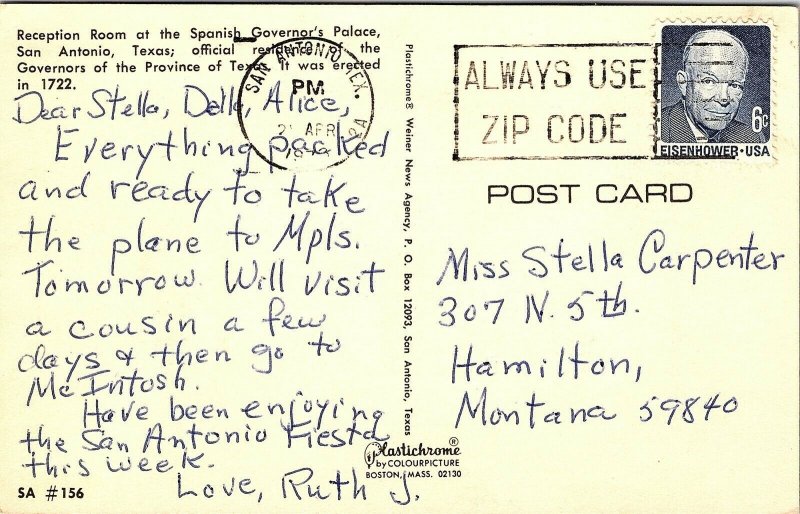 Reception Room at the Spanish Governor's Palace,
San Antonio, Texas; official residence of the
Governors of the Province of Texas. It was erected
in 1722.
Dear Stella, Della Alice,
Everything packed
and ready to take
the plane to Mpls.
Tomorrow. Will visit
a cousin a few
days & then go to
McIntosh.
Have been enjoying
the San Antonio Fiesta
this week.
Love, Ruth J.
SA #156
SAN ANTONIO, TEX.
PM
APR
Plastichrome® Weiner News Agency, P. O. Box 12093, San Antonio, Texas
Plastichrome®
by COLOURPICTURE
BOSTON, MASS. 02130
ALWAYS USE
ZIP CODE
6c
EISENHOWER·USA
POST CARD
Miss Stella Carpenter
307 N. 5th.
Hamilton,
Montana 59840